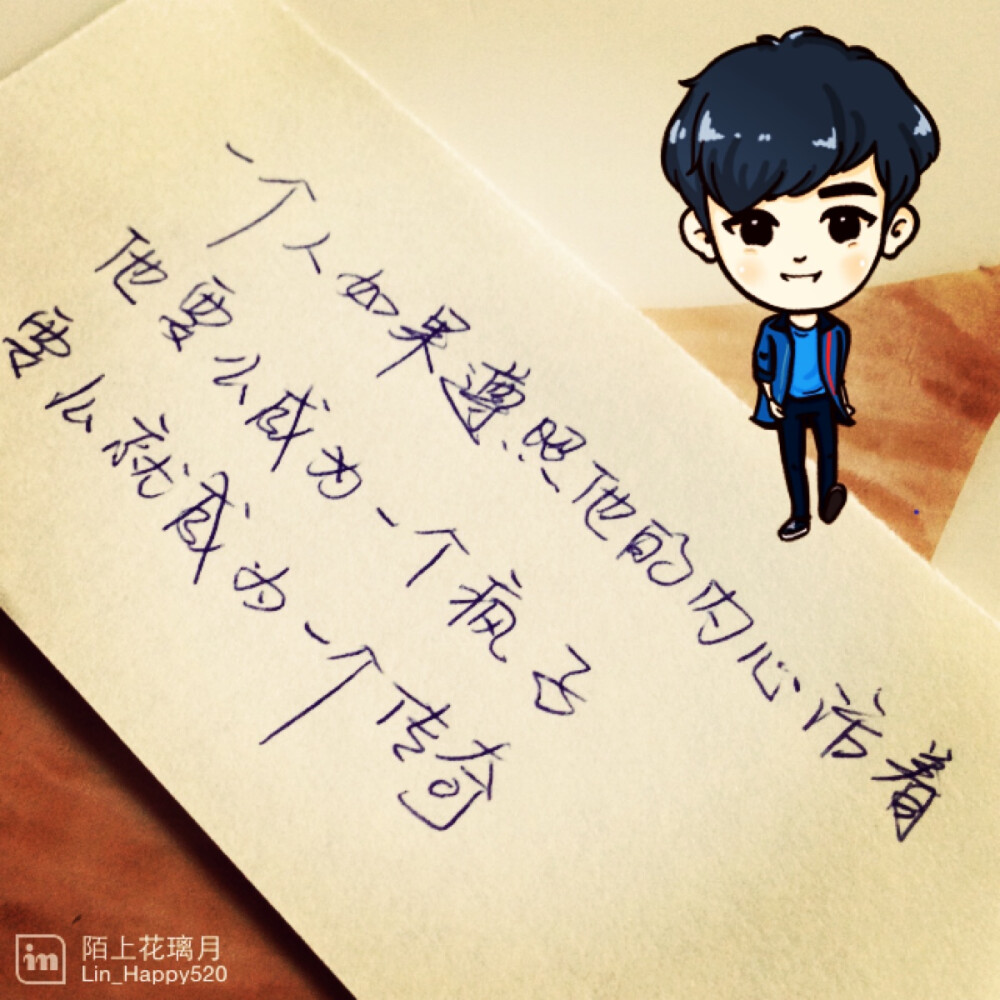 一个人如果遵照他的内心活着
他要么成为一个疯子
要么就成为一个传奇
im
陌上花璃月
Lin_Happy520